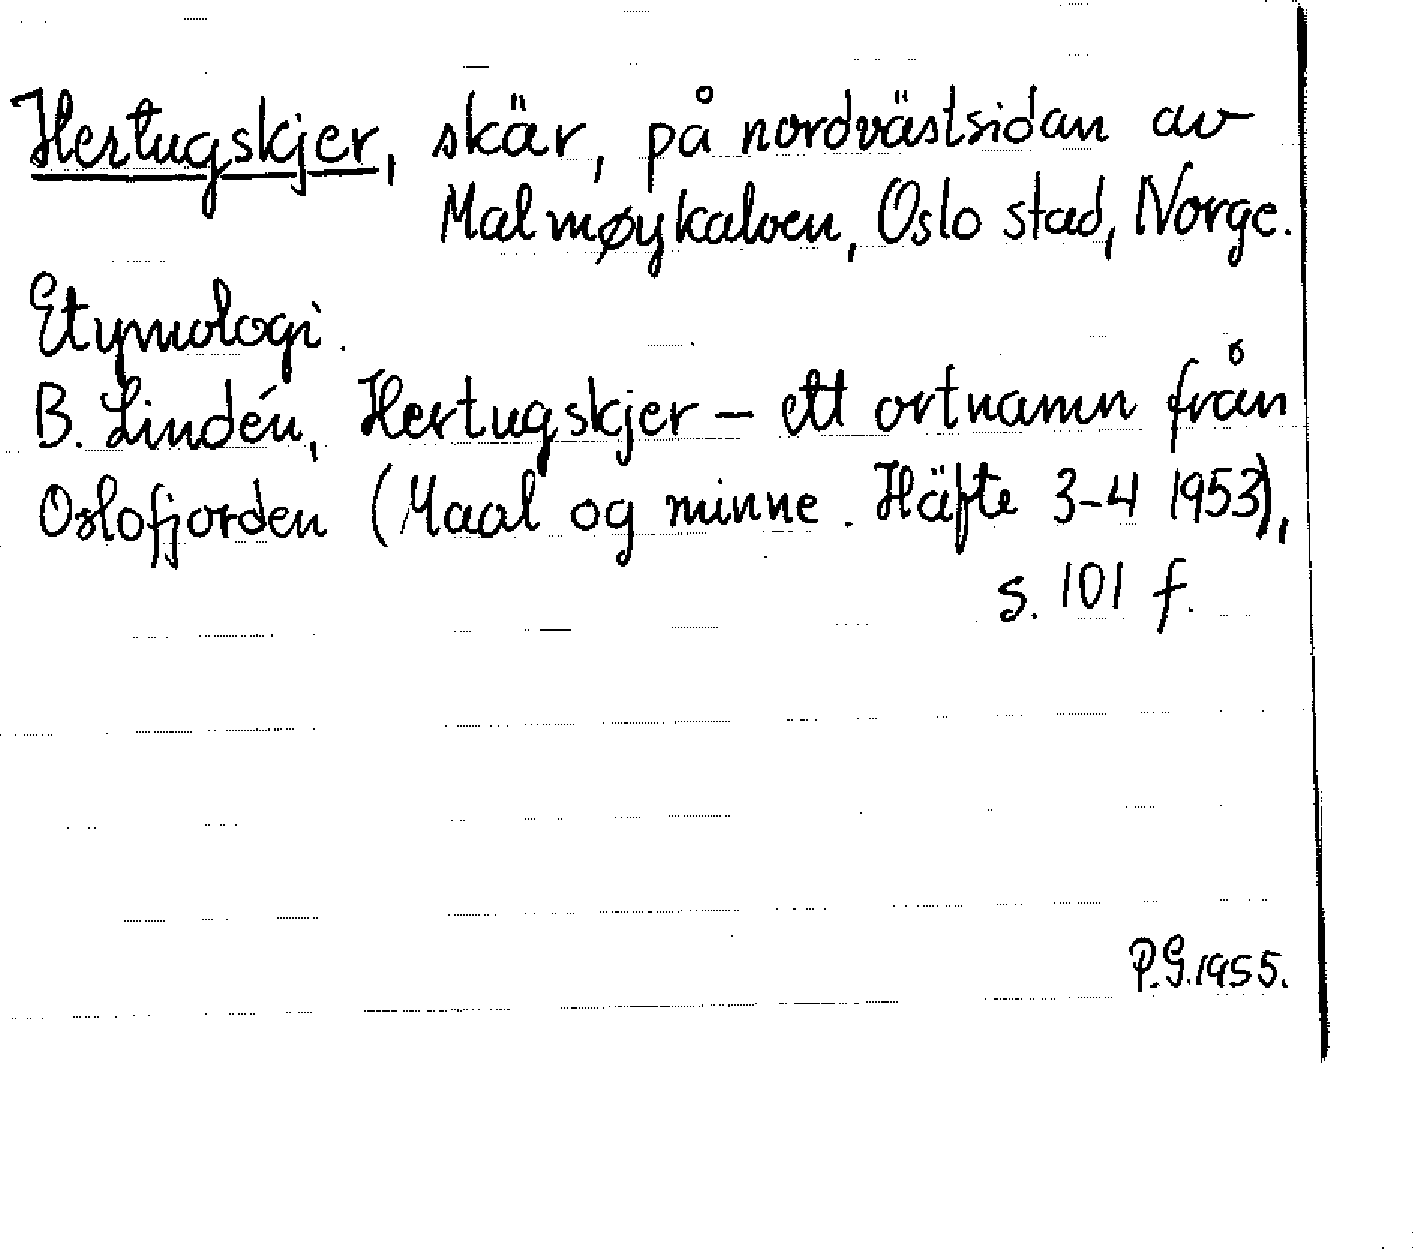 Hertugskjer, skär, på nordvästsidan av
Malmøykalven, Oslo stad, Norge.
Etymologi.
B. Lindén, Hertugskjer – ett ortnamn från
Oslofjorden (Maal og minne. Häfte 3-4 1953),
s. 101 f.
P.G. 1955.